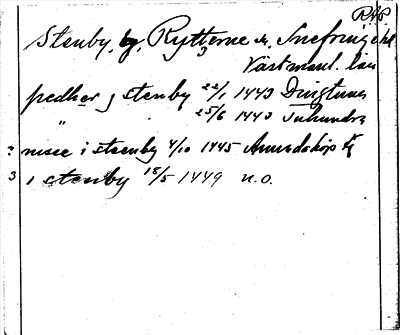 RAP
Stenby, by, Rytterne sn, Snefringe hd
Västmanl. län
pedher j stenby 22/1 1443 Dingtuna
" 25/6 1443 Tuhundra
2 nisse i steenby 4/10 1445
3 i stenby 15/5 1449 n.o.